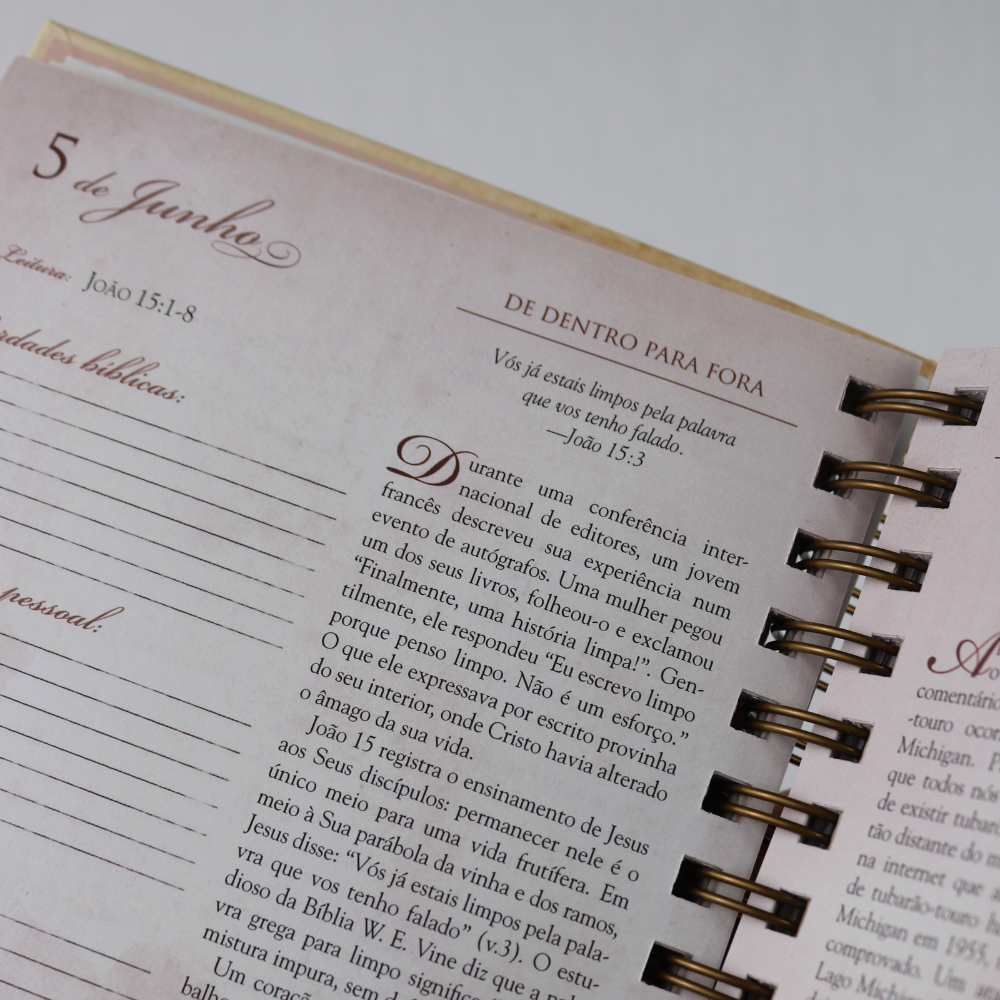 5 de Junho
Leitura: João 15:1-8
bíblicas:
pessoal:
DE DENTRO PARA FORA
Vós já estais limpos pela palavra
que vos tenho falado.
—João 15:3
Durante uma conferência inter-
nacional de editores, um jovem
francês descreveu sua experiência num
evento de autógrafos. Uma mulher pegou
um dos seus livros, folheou-o e exclamou
“Finalmente, uma história limpa!”. Gen-
tilmente, ele respondeu “Eu escrevo limpo
porque penso limpo. Não é um esforço.”
O que ele expressava por escrito provinha
do seu interior, onde Cristo havia alterado
o âmago da sua vida.
João 15 registra o ensinamento de Jesus
aos Seus discípulos: permanecer nele é o
único meio para uma vida frutífera. Em
meio à Sua parábola da vinha e dos ramos,
Jesus disse: “Vós já estais limpos pela pala-
vra que vos tenho falado” (v.3). O estu-
dioso da Bíblia W. E. Vine diz que a
vra grega para limpo
mistura impura, sem
Um
comentário
-touro
Michigan.
que todos nós
de existir
tão distante do
na internet que
de tubarão-touro
Michigan em 1955,
comprovado. Um
Lago